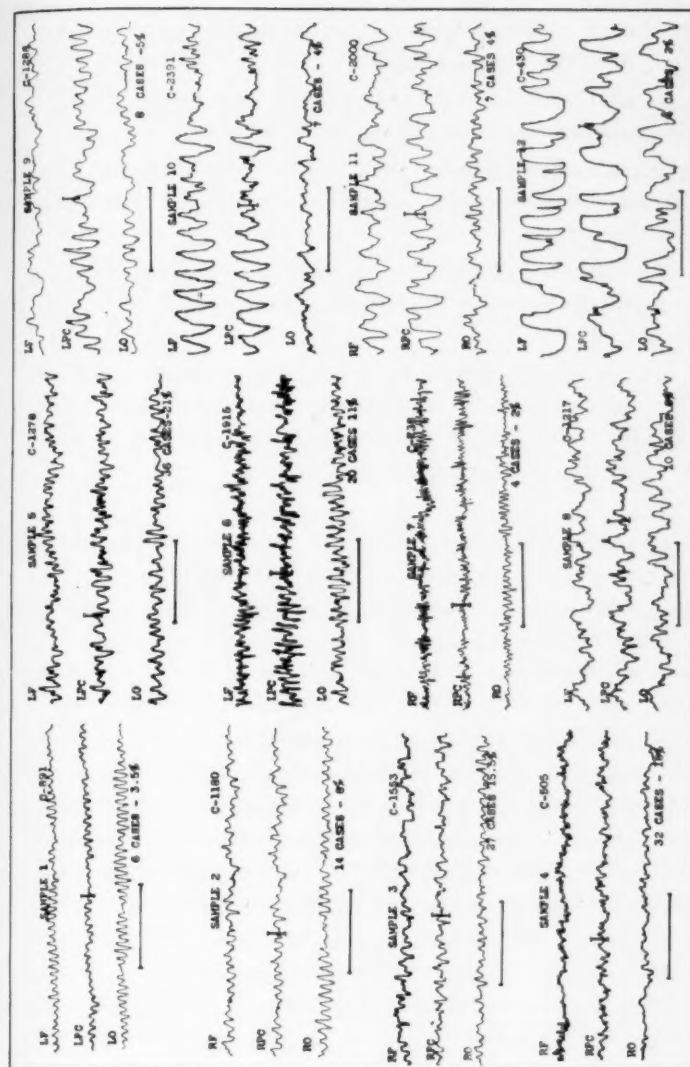 SAMPLE 1 C-291
LF
LPC
LO
6 CASES - 3.5%
SAMPLE 2 C-1180
RF
RPC
RO
14 CASES - 8%
SAMPLE 3 C-1553
RF
RPC
RO
27 CASES 15.5%
SAMPLE 4 C-505
RF
RPC
RO
32 CASES -
SAMPLE 5 C-1278
LF
LPC
LO
36 CASES-21%
SAMPLE 6 C-1916
LF
LPC
LO
20 CASES 11%
SAMPLE 7
RF
RPC
RO
4 CASES - 2%
SAMPLE 8 C-1217
LF
LPC
LO
10 CASES
SAMPLE 9 C-1288
LF
LPC
LO
8 CASES -5%
SAMPLE 10 C-2391
LF
LPC
LO
7 CASES - 4%
SAMPLE 11 C-2000
RF
RPC
RO
7 CASES 4%
SAMPLE 12 C-430
LF
LPC
LO
CASES 2%